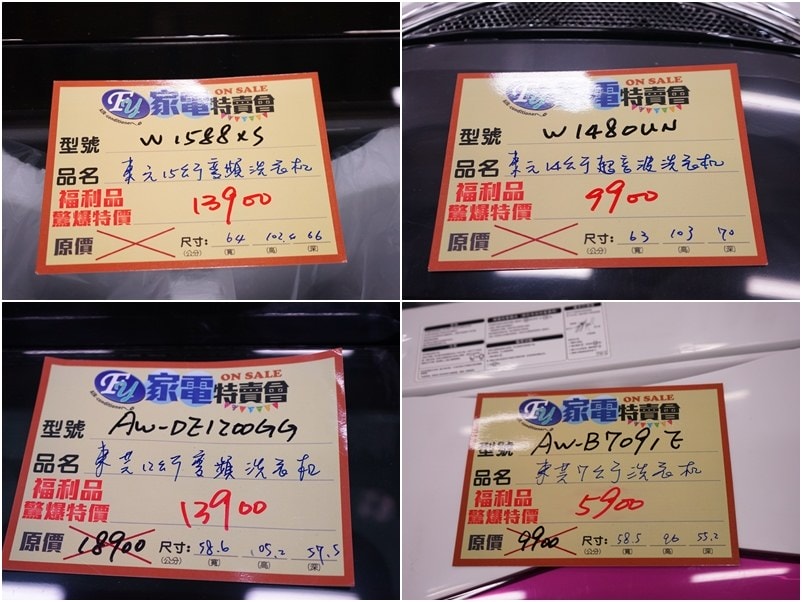 Fy 家電特賣會 ON SALE
air conditioner
型號 W1588XS
品名 東元15公斤變頻洗衣机
福利品
驚爆特價 13900
原價 尺寸: 64 102.6 66
(公分) (寬) (高) (深)
Fy 家電特賣會 ON SALE
air conditioner
型號 W1480UN
品名 東元14公斤超音波洗衣机
福利品
驚爆特價 9900
原價 尺寸: 63 103 70
(公分) (寬) (高) (深)
Fy 家電特賣會 ON SALE
air conditioner
型號 AW-DE1200GG
品名 東芝12公斤變頻洗衣机
福利品
驚爆特價 13900
原價 18900 尺寸: 58.6 105.2 57.5
(公分) (寬) (高) (深)
Fy 家電特賣會 ON SALE
air conditioner
型號 AW-B7091E
品名 東芝7公斤洗衣机
福利品
驚爆特價 5900
原價 9900 尺寸: 58.5 96 55.2
(公分) (寬) (高) (深)